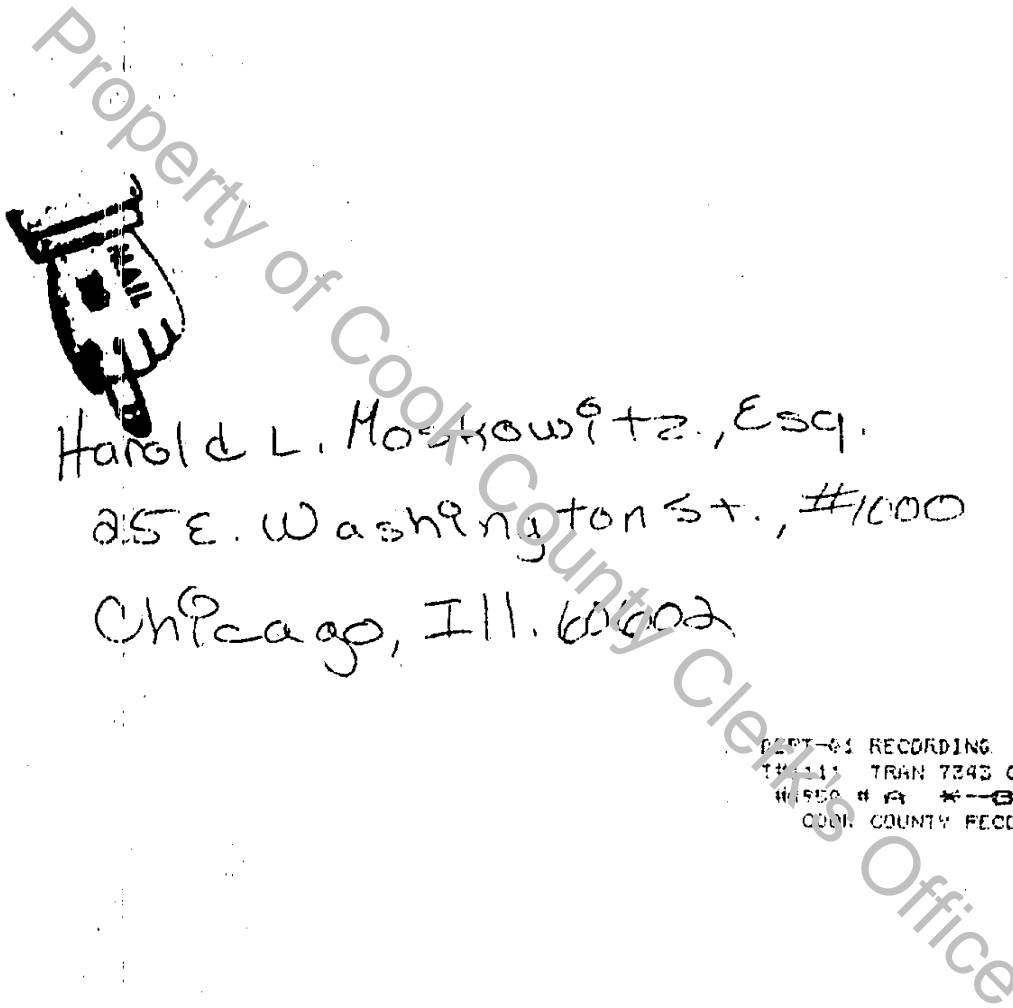 Property of Cook County Clerk's Office
MAIL
Harold L. Moskowitz, Esq.
25 E. Washington St., #1000
Chicago, Ill. 60602
DEPT-01 RECORDING
TRAN 7343
# A *--
COOK COUNTY